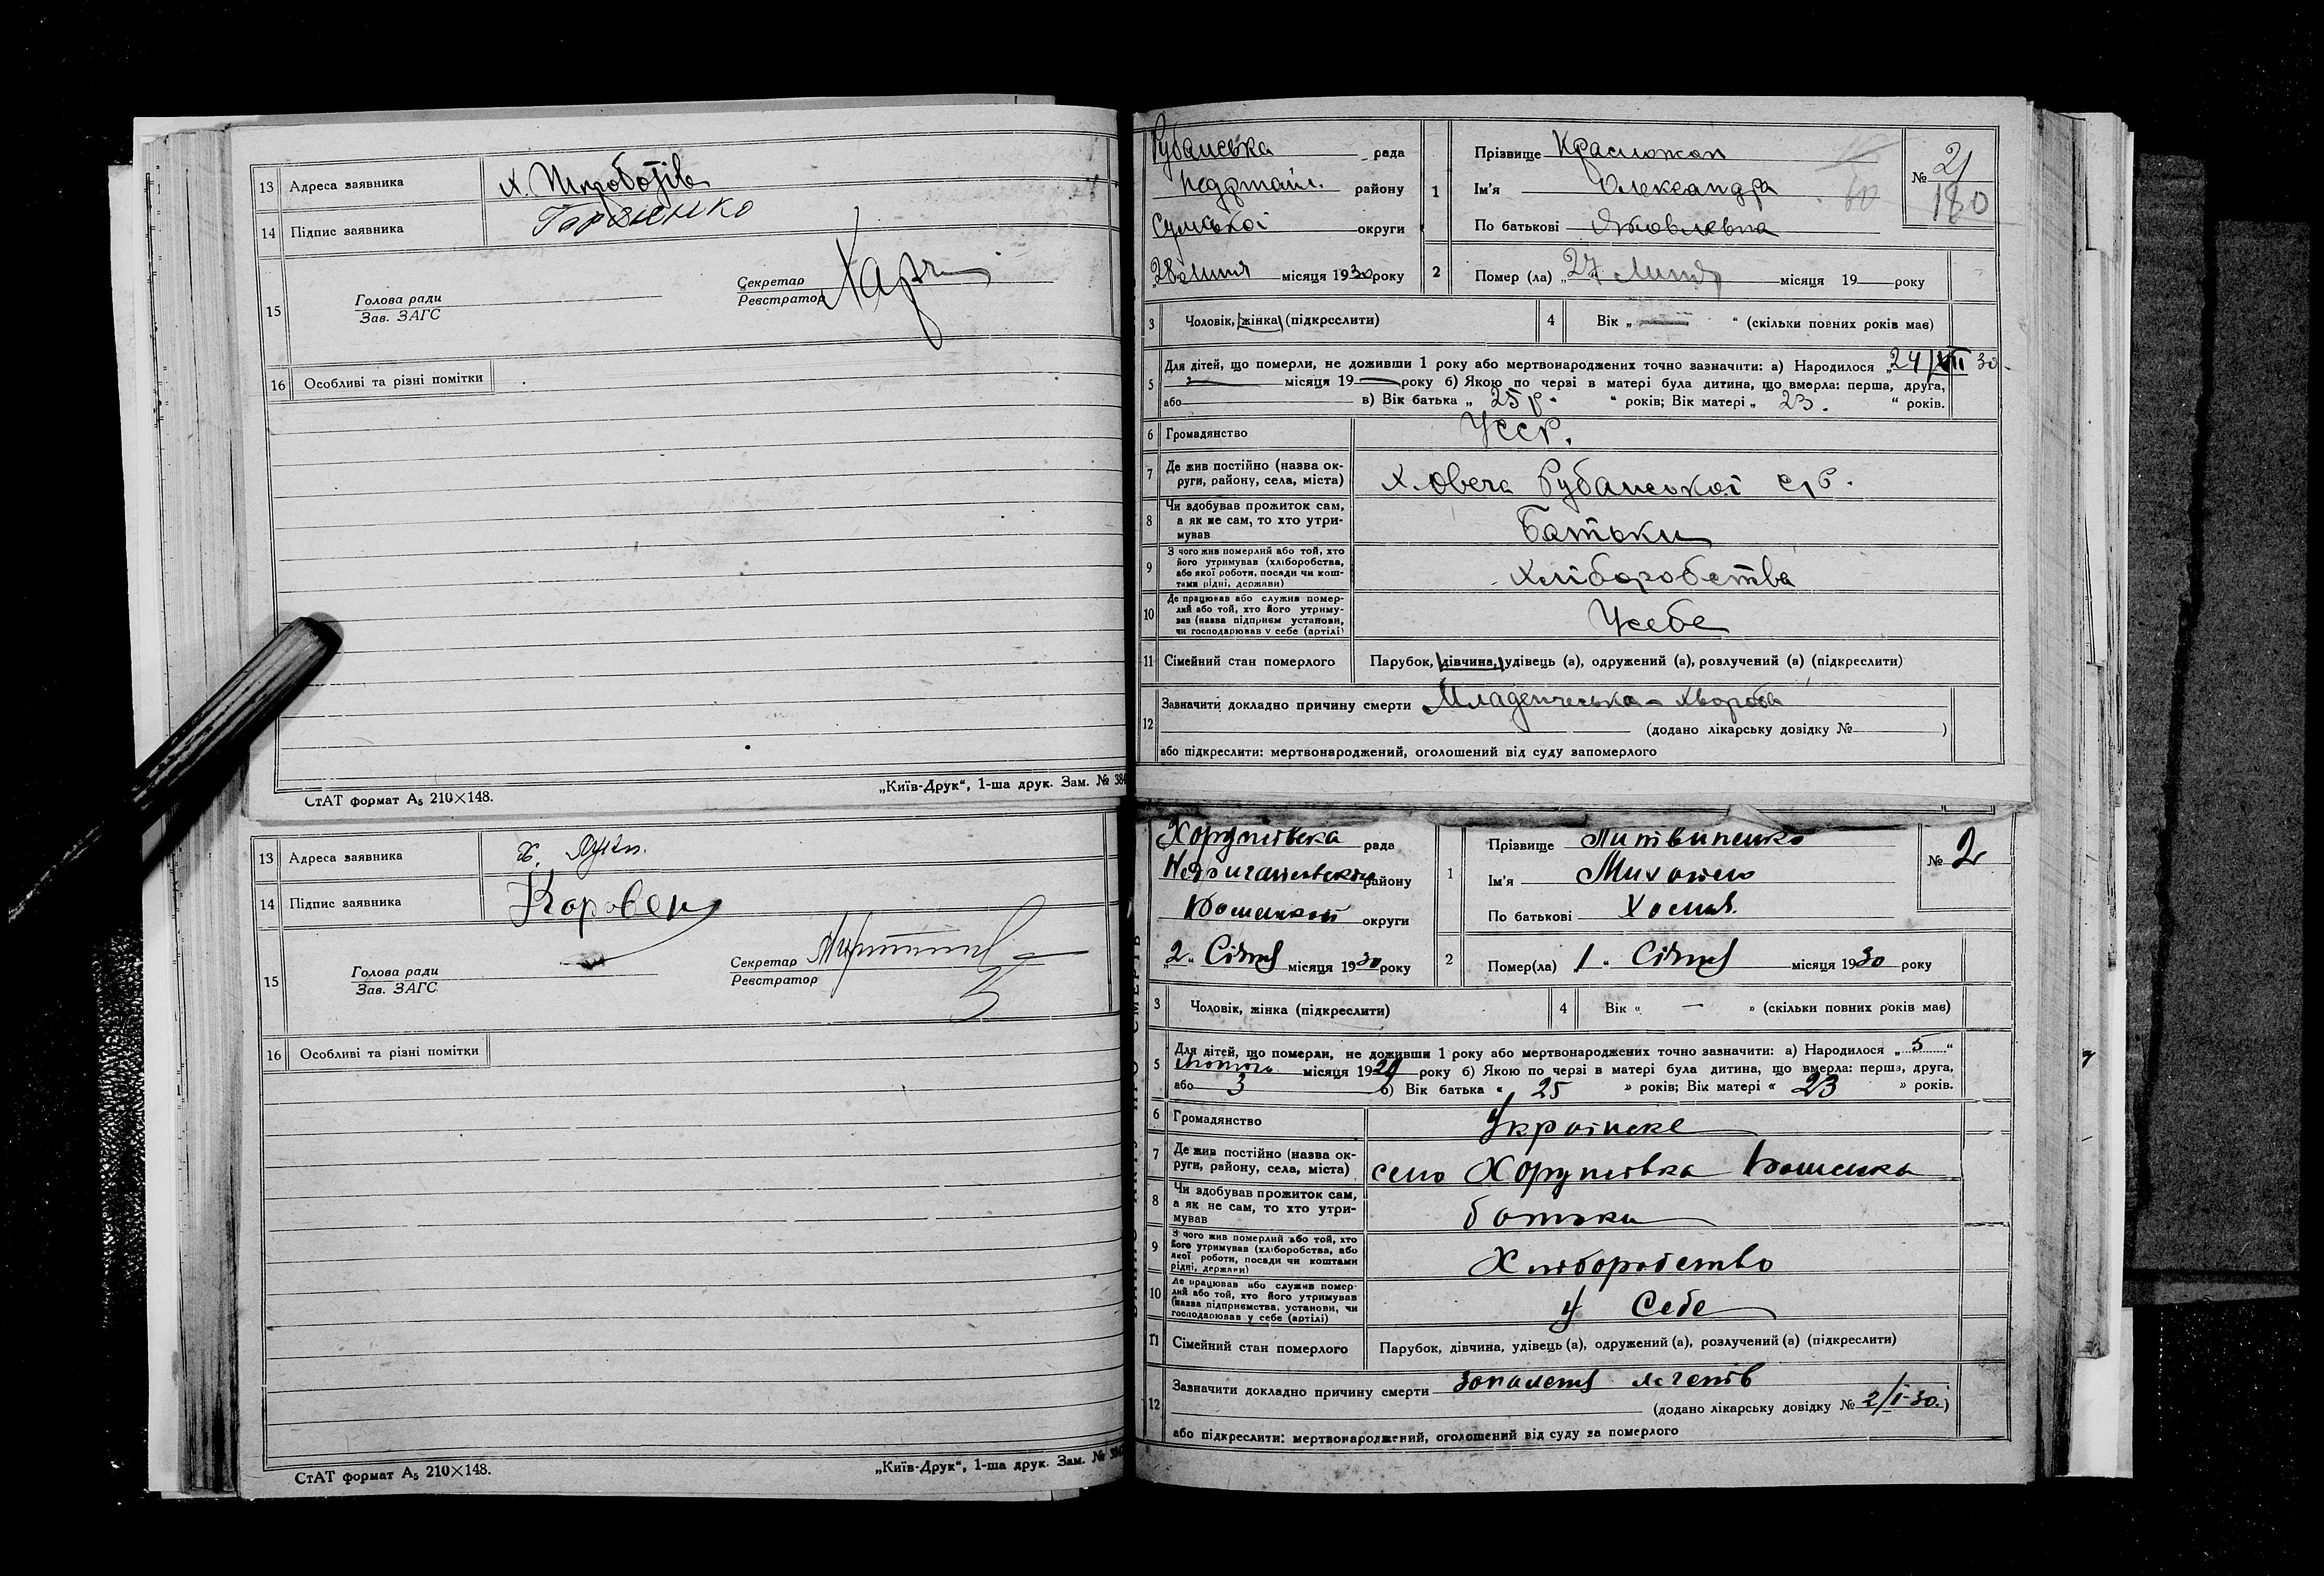 13 Адреса заявника
14 Підпис заявника
15 Голова ради
Зав. ЗАГС
Секретар
Реєстратор
16 Особливі та різні помітки
СтАТ формат А5 210×148.
„Київ-Друк“, 1-ша друк. Зам. №
13 Адреса заявника х.
14 Підпис заявника
15 Голова ради
Зав. ЗАГС
Секретар
Реєстратор
16 Особливі та різні помітки
СтАТ формат А5 210×148.
„Київ-Друк“, 1-ша друк. Зам. №
Рубанська рада
району
Сумської округи
28 Липня місяця 1930 року
1 Прізвище
Ім'я Олександра
По батькові Яковлевна
№ 21
180
2 Помер (ла) „27 Липня місяця 19 року
3 Чоловік, жінка (підкреслити)
4 Вік „ “ (скільки повних років має)
5 Для дітей, що померли, не доживши 1 року або мертвонароджених точно зазначити: а) Народилося „24/VII 30
місяця 19 року б) Якою по черзі в матері була дитина, що вмерла: перша, друга,
або в) Вік батька „ 25 р. “ років; Вік матері „ 23. “ років.
6 Громадянство Усср.
7 Де жив постійно (назва ок-
руги, району, села, міста) х. Овеча Рубанської с/р.
8 Чи здобував прожиток сам,
а як не сам, то хто утри-
мував Батьки
9 З чого жив померлий або той, хто
його утримував (хліборобства,
або якої роботи, посади чи кош-
тами рідні, держави) Хліборобства
10 Де працював або служив помер-
лий або той, хто його утриму-
вав (назва підприєм установи,
чи господарював у себе (артілі) Усебе
11 Сімейний стан померлого Парубок, дівчина, удівець (а), одружений (а), розлучений (а) (підкреслити)
12 Зазначити докладно причину смерти Младенческа хвороба
(додано лікарську довідку № )
або підкреслити: мертвонароджений, оголошений від суду запомерлого
Хоружівська рада
району
округи
„2„ Січня місяця 1930 року
1 Прізвище Литвиненко
Ім'я
По батькові
№ 2
2 Помер(ла) 1„ Січня місяця 1930 року
3 Чоловік, жінка (підкреслити)
4 Вік « — » (скільки повних років має)
5 Для дітей, що померли, не доживши 1 року або мертвонароджених точно зазначити: а) Народилося „5“
місяця 1929 року б) Якою по черзі в матері була дитина, що вмерла: перша, друга,
або 3 б) Вік батька « 25 » років; Вік матері « 23 » років.
6 Громадянство Українске
7 Де жив постійно (назва ок-
руги, району, села, міста) село Хоружівка
8 Чи здобував прожиток сам,
а як не сам, то хто утри-
мував батьки
9 З чого жив померлий або той, хто
його утримував (хліборобства, або
якої роботи, посади чи коштами
рідні, держави) Хліборобство
10 Де працював або служив помер-
лий або той, хто його утримував
(назва підприємства, установи, чи
господарював у себе (артілі) у Себе
11 Сімейний стан померлого Парубок, дівчина, удівець (а), одружений (а), розлучений (а) (підкреслити)
12 Зазначити докладно причину смерти запаленя легенів
(додано лікарську довідку № 2/I-30.)
або підкреслити: мертвонароджений, оголошений від суду за померлого